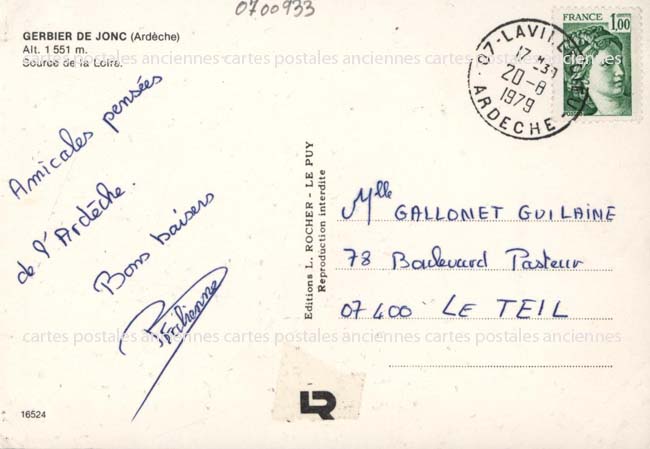 0700933
GERBIER DE JONC (Ardèche)
Alt. 1 551 m.
Source de la Loire.
Amicales pensées
de l'Ardèche.
Bons baisers
16524
Editions L. ROCHER - LE PUY
Reproduction interdite
07-LAVI
17 H 30
20-8
1979
ARDECHE
FRANCE
1,00
Mlle GALLONET GUILAINE
78 Boulevard Pasteur
07400 LE TEIL
LR
cartes postales anciennes cartes postales anciennes cartes postales anciennes
cartes postales anciennes cartes postales anciennes cartes postales anciennes
cartes postales anciennes cartes postales anciennes cartes postales anciennes